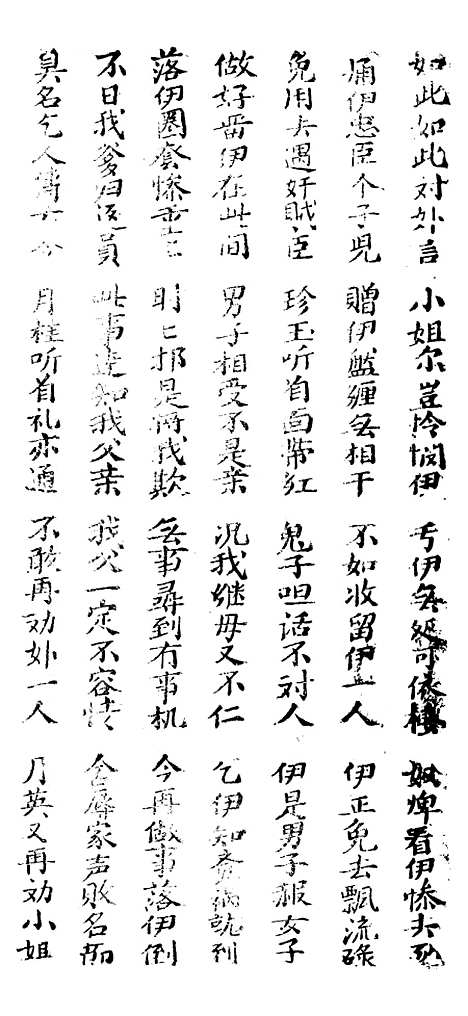 如此如此对外言 小姐尔岂怜悯伊 亏伊無処可依棲 奴婢看伊惨去死
痛伊忠臣个子児 贈伊盤缠無相干 不如收留伊一人 伊正免去飄流碌
免用去遇奸贼臣 珍玉听着面带红 鬼子呾话不对人 伊是男子 女子
做好留伊在此间 男子相受不是亲 况我继母又不仁 乞伊知 祸就到
落伊圈套惨 時亡 是 我欺 無事尋到有事机 今再做事落伊倒
不日我爹归返員 此事 知我父亲 我父一定不容情 辱家声败名節
臭名乞人傳古今 月桂听着礼亦通 不敢再劝外一人 月英又再劝小姐